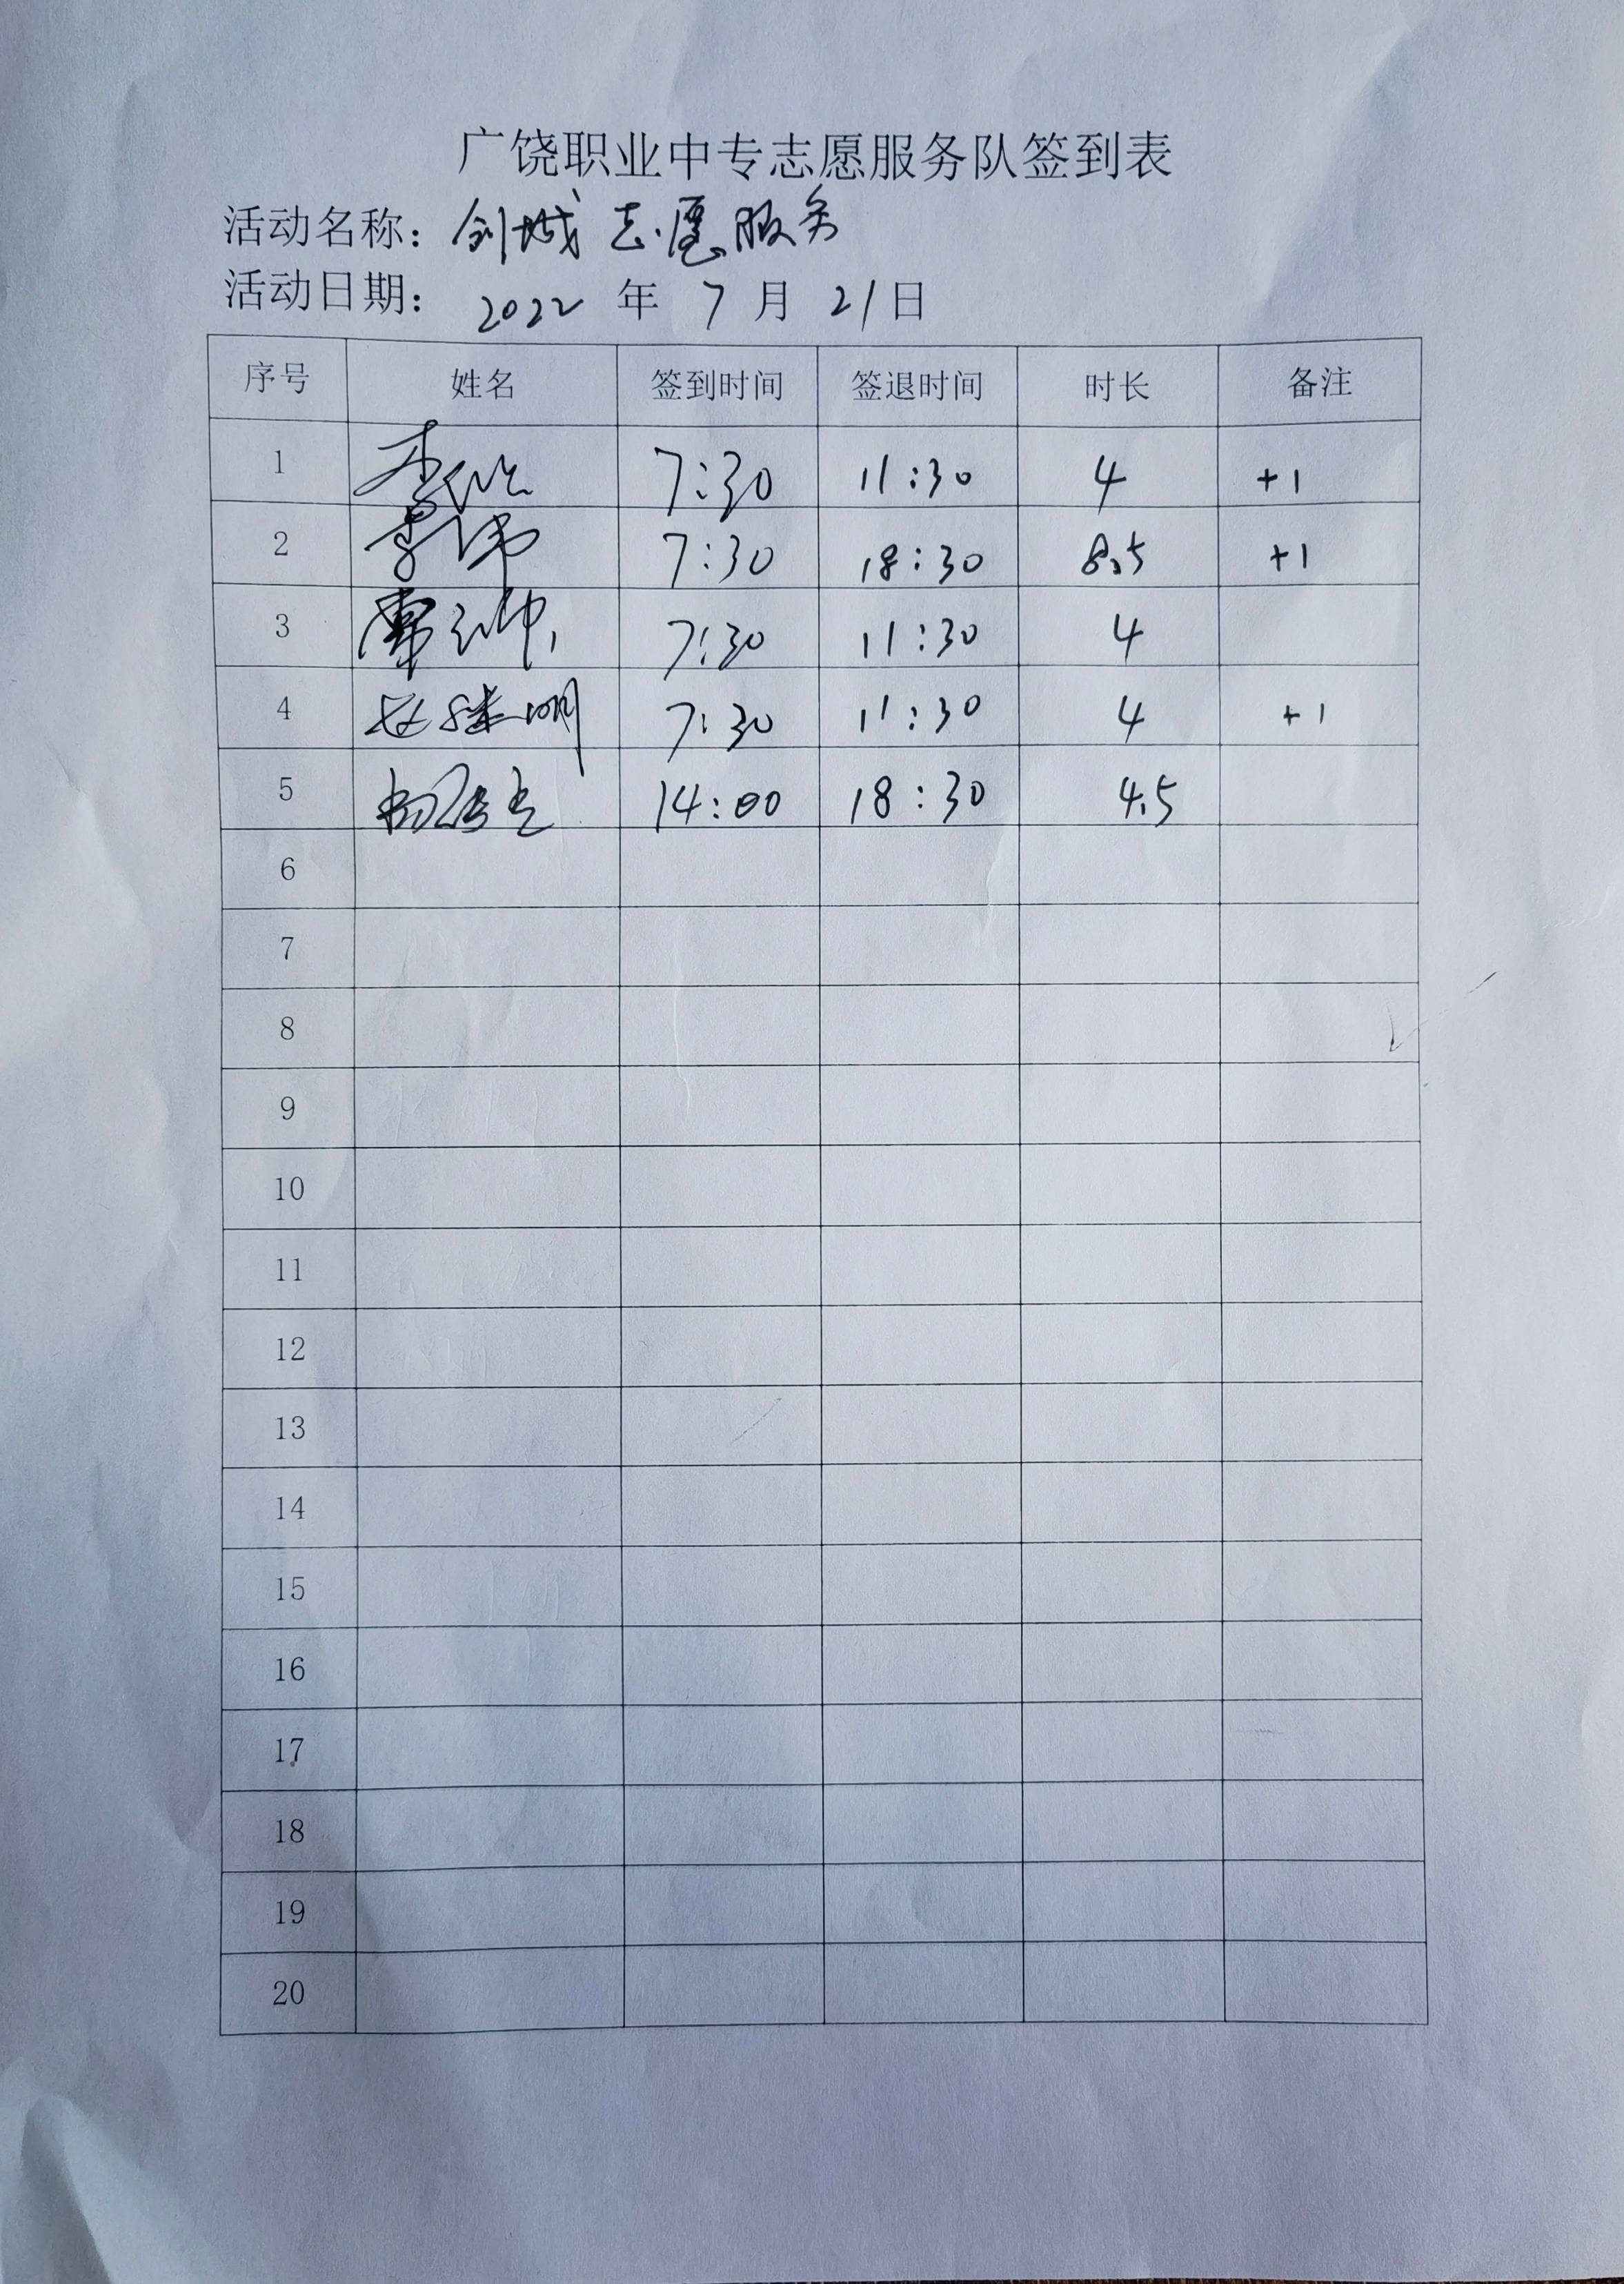 广饶职业中专志愿服务队签到表
活动名称：创城志愿服务
活动日期：2022年7月21日
序号 姓名 签到时间 签退时间 时长 备注
1 7:30 11:30 4 +1
2 李伟 7:30 18:30 8.5 +1
3 7:30 11:30 4
4 7:30 11:30 4 +1
5 14:00 18:30 4.5
6
7
8
9
10
11
12
13
14
15
16
17
18
19
20